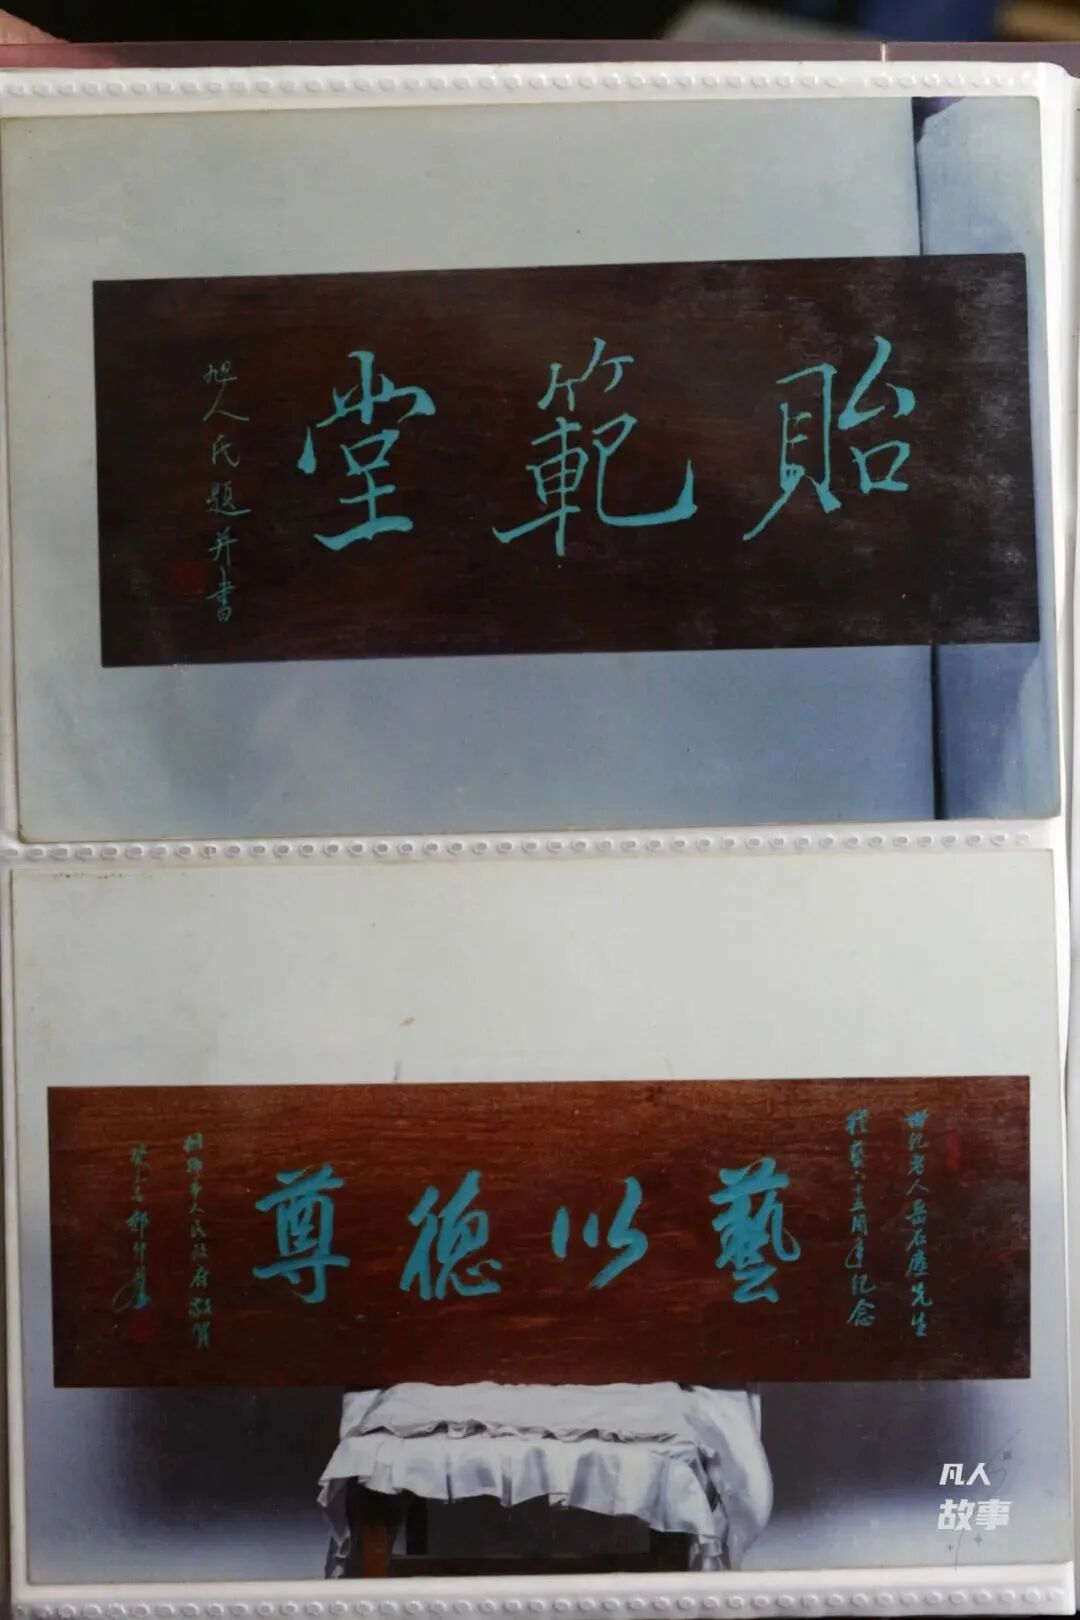 貽範堂
旭人氏題并書
世紀老人岳石塵先生
從藝八十五周年紀念
藝以德尊
桐鄉市人民政府敬賀
凡人
故事